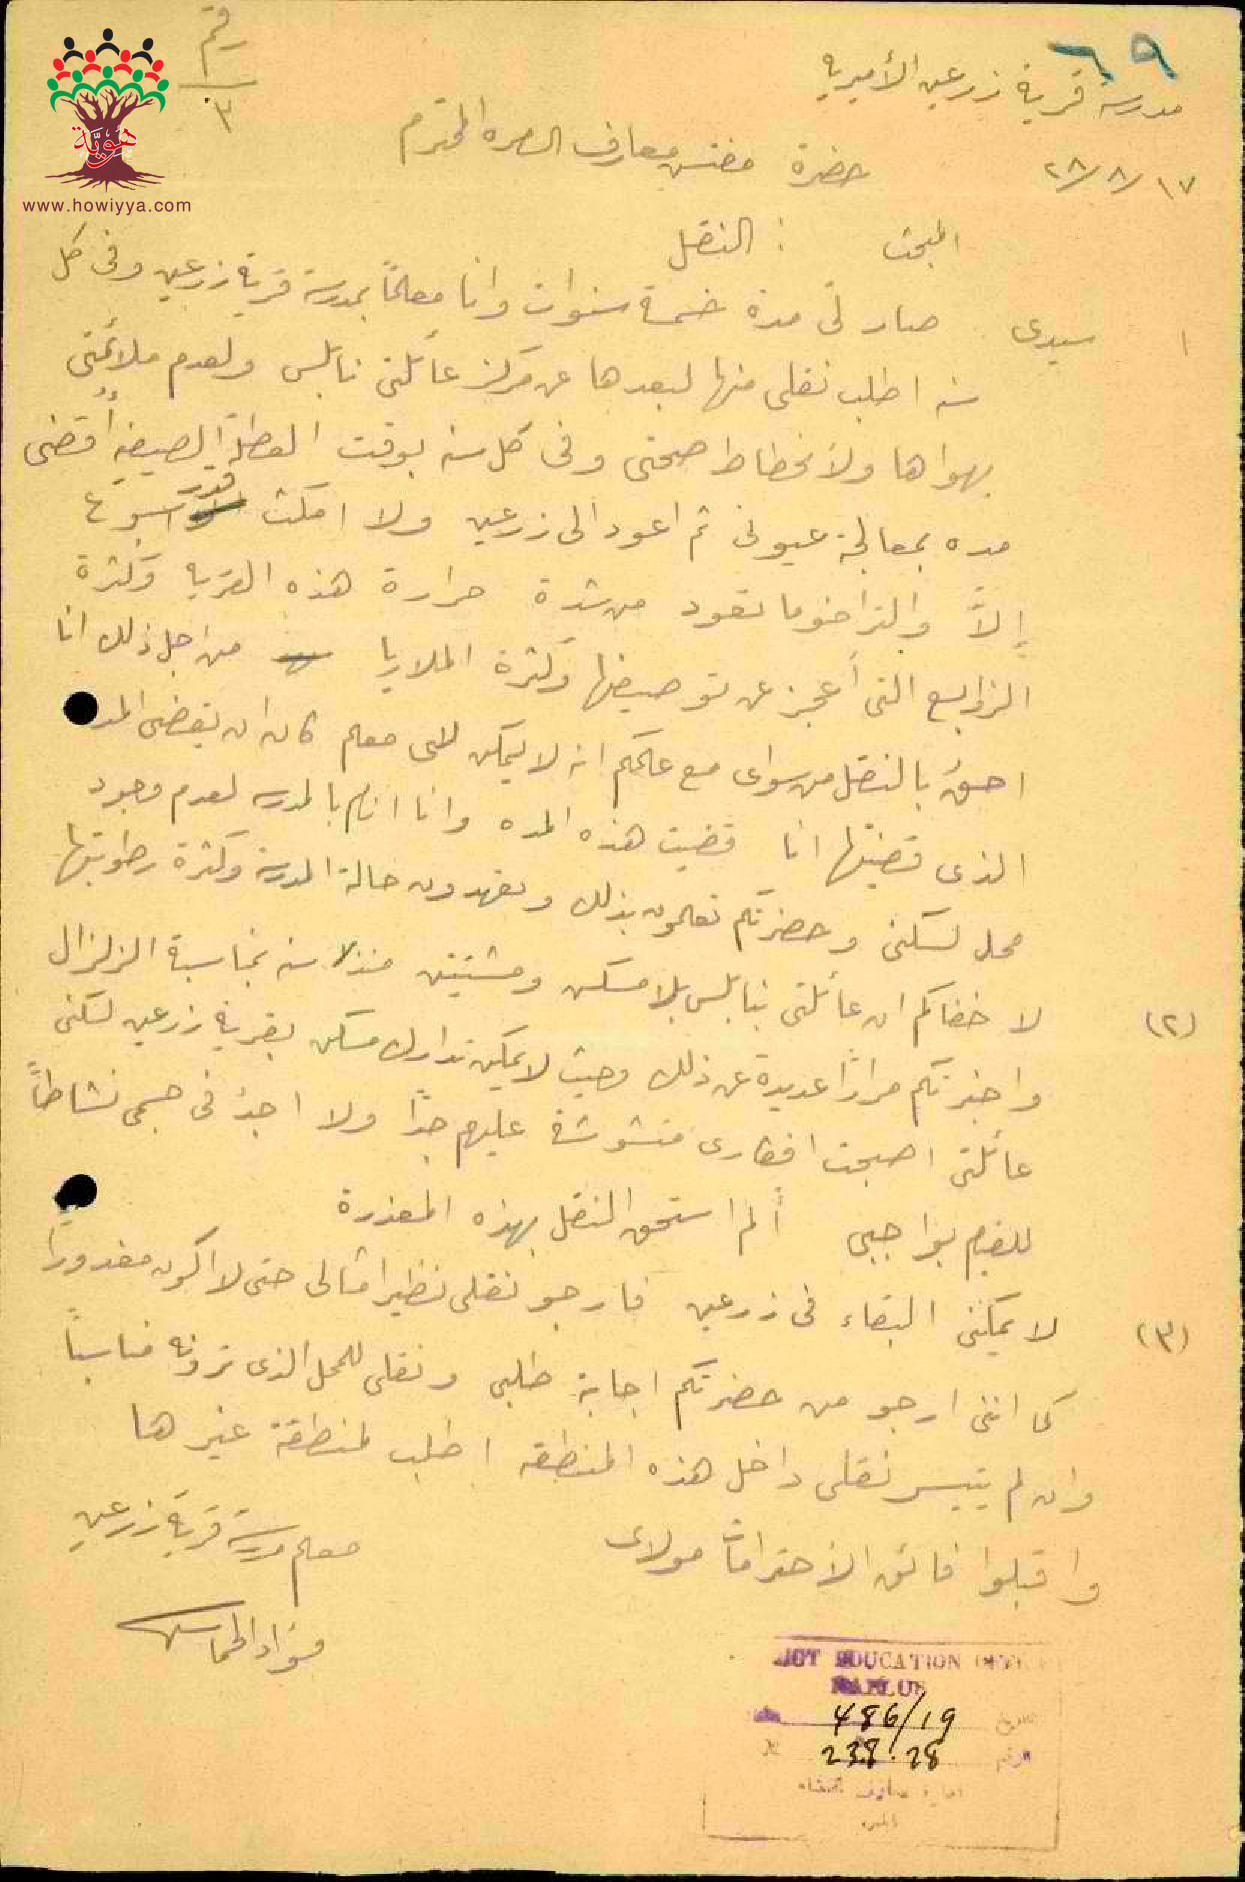 رقم
٣
هوية
www.howiyya.com
٦٩
مدرسة قرية زرعين الأميريه
٢٨/٨/١٧
حضرة مفتش معارف الناصره المحترم
المبحث : النقل
١ سيدى صار لى مدة خمسة سنوات وانا معلمًا بمدرسة قرية زرعين وفى كل
سنه اطلب نقلى منها لبعدها عن مركز عائلتى نابلس ولعدم ملائمتى
بهواها ولانحطاط صحتى وفى كل سنه بوقت العطلة الصيفيه أقضى
مده بمعالجة عيونى ثم اعود الى زرعين ولا امكث قدر اسبوع
إلاَّ والتراخوما تعود من شدة حرارة هذه القريه وكثرة
الزوابع التى أعجز عن توصيفها وكثرة الملاريا من اجل ذلك انا
احق بالنقل من سواى مع علمكم انه لا يمكن لاى معلم كان ان يقضى المده
الذى قضيتها انا قضيت هذه المده وانا انام بالمدرسه لعدم وجود
محل لسكنى وحضرتكم تعلمون بذلك وتعهدون حالة المدرسة وكثرة رطوبتها
(٢) لا خفاكم ان عائلتى بنابلس بلا مسكن ومشتتين منذ سنه بمناسبة الزلزال
واخبرتكم مرارًا عديدة عن ذلك وحيث لا يمكن تدارك مسكن بقرية زرعين لسكنى
عائلتى اصبحت افكارى مشوشة عليهم جدًا ولا اجد فى جسمى نشاطاً
للقيام بواجبى ألم استحق النقل بهذه المعذرة
(٣) لا يمكننى البقاء فى زرعين فارجو نقلى نظير امثالى حتى لا اكون مغدوراً
كما اننى ارجو من حضرتكم اجابة طلبى ونقلى للمحل الذى ترونه مناسباً
وان لم يتيسر نقلى داخل هذه المنطقه اطلب لمنطقة غيرها
واقبلوا فائق الأحترامات مولاى
معلم مدرسة قرية زرعين
فؤاد الخماش
EDUCATION OFFI
NABLUS
486/19
23.8.28